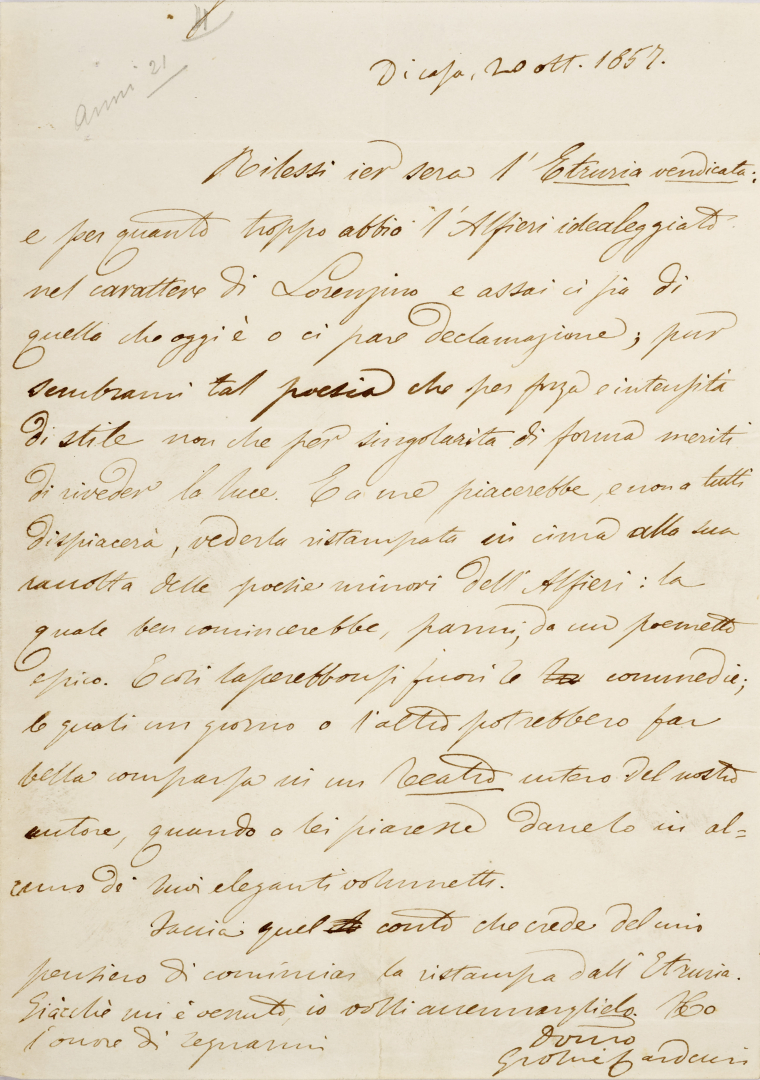 anni 21
Di casa, 20 ott. 1857.
Rilessi ier sera l'Etruria vendicata:
e per quanto troppo abbia l'Alfieri idealeggiato
nel carattere di Lorenzino e assai ci sia di
quello che oggi è o ci pare declamazione; pur
sembrami tal poesia che per forza e intensità
di stile non che per singolarità di forma meriti
di riveder la luce. E a me piacerebbe, e non a tutti
dispiacerà, vederla ristampata in cima alla sua
raccolta delle poesie minori dell'Alfieri: la
quale ben comincerebbe, parmi, da un poemetto
epico. E così lascerebbonsi fuori le commedie;
le quali un giorno o l'altro potrebbero far
bella comparsa in un Teatro intero del nostro
autore, quando a lei piacesse darcelo in al=
cuno di suoi eleganti volumetti.
Faccia quel conto che crede del mio
pensiero di cominciar la ristampa dall'Etruria.
Giacchè mi è venuto, io volli accennarglielo. Ho
l'onore di segnarmi
Devmo
Giosuè Carducci